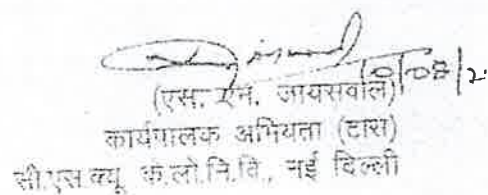 (एस. एन. जायसवाल)
कार्यपालक अभियंता (टास)
सी.एस.क्यू. के.लो.नि.वि., नई दिल्ली